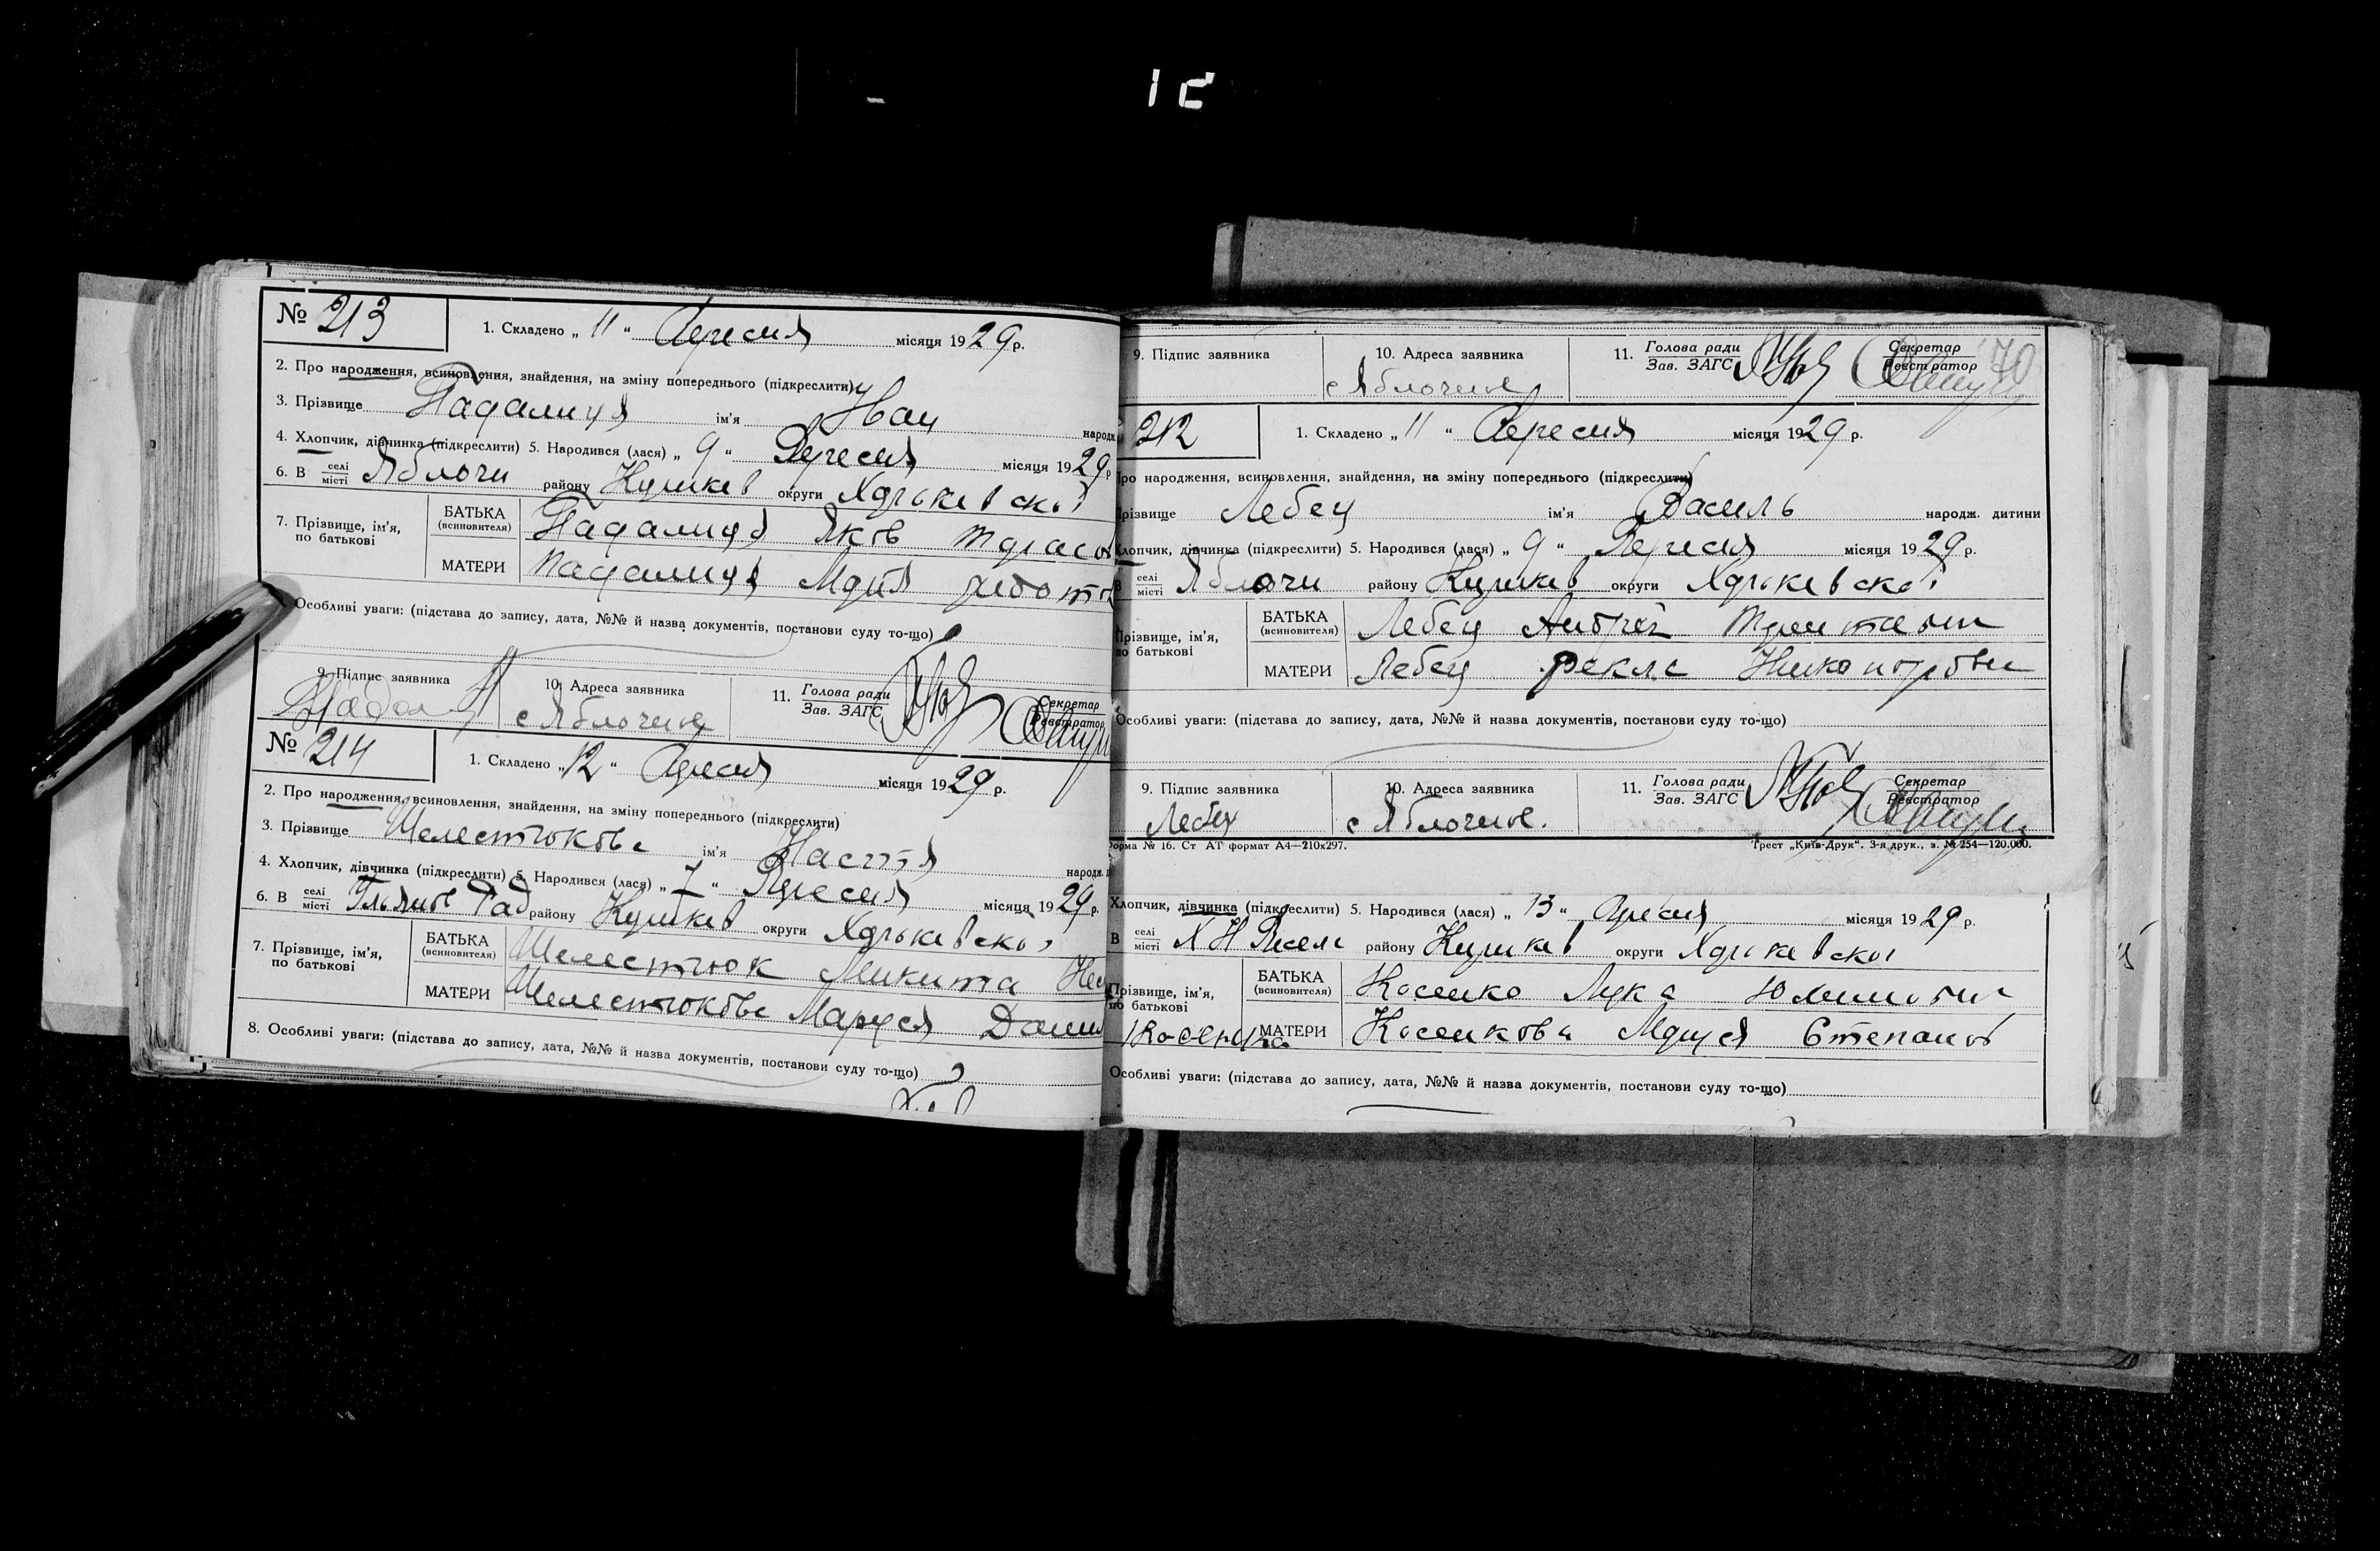 12
№ 213
1. Складено „ 11 “ Вересня місяця 1929 р.
2. Про народження, всиновлення, знайдення, на зміну попереднього (підкреслити)
3. Прізвище Падалиця ім'я Іван народж.
4. Хлопчик, дівчинка (підкреслити) 5. Народився (лася) „ 9 “ Вересня місяця 1929 р
6. В селі місті Яблочн району Кишків округи Харьковскої
7. Прізвище, ім'я, по батькові
БАТЬКА (всиновителя) Падалиця Яков Тарасов
МАТЕРИ Падалиця Мария Федотов
Особливі уваги: (підстава до запису, дата, №№ й назва документів, постанови суду то-що)
9. Підпис заявника
10. Адреса заявника с Яблочине
11. Голова ради Зав. ЗАГС
Секретар Реєстратор
№ 214
1. Складено „ 12 “ Вересня місяця 1929 р.
2. Про народження, всиновлення, знайдення, на зміну попереднього (підкреслити)
3. Прізвище Шелестюкова ім'я Настя народж.
4. Хлопчик, дівчинка (підкреслити) 5. Народився (лася) „ 7 “ Вересня місяця 1929 р.
6. В селі місті Рад району Кишків округи Харьковскої
7. Прізвище, ім'я, по батькові
БАТЬКА (всиновителя) Шелестюк Микита
МАТЕРИ Шелестюкова Маруся Данил
8. Особливі уваги: (підстава до запису, дата, №№ й назва документів, постанови суду то-що)
9. Підпис заявника
10. Адреса заявника с Яблочине
11. Голова ради Зав. ЗАГС
Секретар Реєстратор
70
212
1. Складено „ 11 “ Вересня місяця 1929 р.
ро народження, всиновлення, знайдення, на зміну попереднього (підкреслити)
різвище Лебец ім'я Василь народж. дитини
лопчик, дівчинка (підкреслити) 5. Народився (лася) „ 9 “ Вересня місяця 1929 р.
В селі місті Яблочн району Кишків округи Харьковскої
Прізвище, ім'я, по батькові
БАТЬКА (всиновителя) Лебец Андрей
МАТЕРИ Лебец Фекла
Особливі уваги: (підстава до запису, дата, №№ й назва документів, постанови суду то-що)
9. Підпис заявника Лебец
10. Адреса заявника с Яблочине.
11. Голова ради Зав. ЗАГС
Секретар Реєстратор
орма № 16. Ст АТ формат А4—210х297.
Трест „Київ-Друк“. 3-я друк., з. № 254—120.000.
Хлопчик, дівчинка (підкреслити) 5. Народився (лася) „ 13 “ Вересня місяця 1929 р.
В селі місті району Кишків округи Харьковскої
Прізвище, ім'я, по батькові
БАТЬКА (всиновителя) Косенко Лука
МАТЕРИ Косенкова Маруся Степанов
Косенка
Особливі уваги: (підстава до запису, дата, №№ й назва документів, постанови суду то-що)